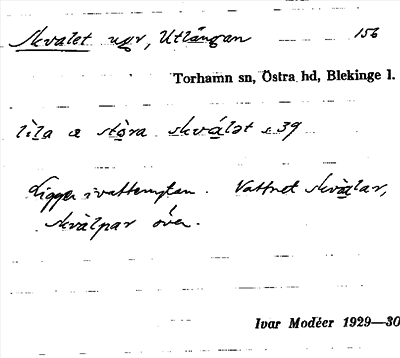 Skvalet ugr, Utlängan 156
Torhamn sn, Östra hd, Blekinge l.
lìla a stòra skvá̱lət s. 39
Ligger i vattenytan. Vattnet skvàlar,
skvàlpar över.
Ivar Modéer 1929—30